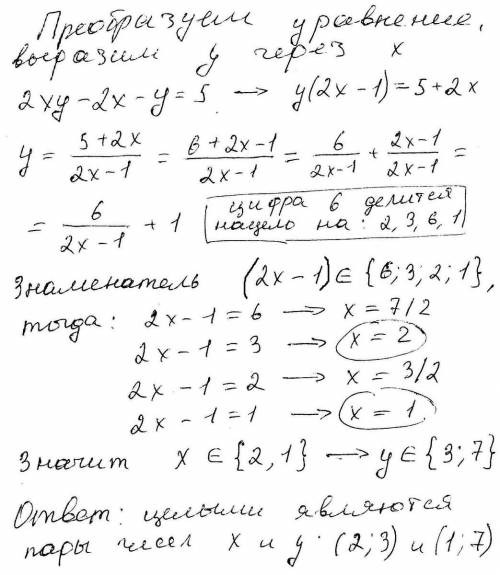 Преобразуем уравнение,
выразим y через x
2xy-2x-y=5 → y(2x-1)=5+2x
y = \frac{5+2x}{2x-1} = \frac{6+2x-1}{2x-1} = \frac{6}{2x-1} + \frac{2x-1}{2x-1} =
= \frac{6}{2x-1} + 1
цифра 6 делится
нацело на: 2, 3, 6, 1
Знаменатель (2x-1)∈{6;3;2;1},
тогда: 2x-1=6 → x=7/2
2x-1=3 → x=2
2x-1=2 → x=3/2
2x-1=1 → x=1
Значит x∈{2,1} → y∈{3;7}
Ответ: целыми являются
пары чисел x и y (2;3) и (1;7)